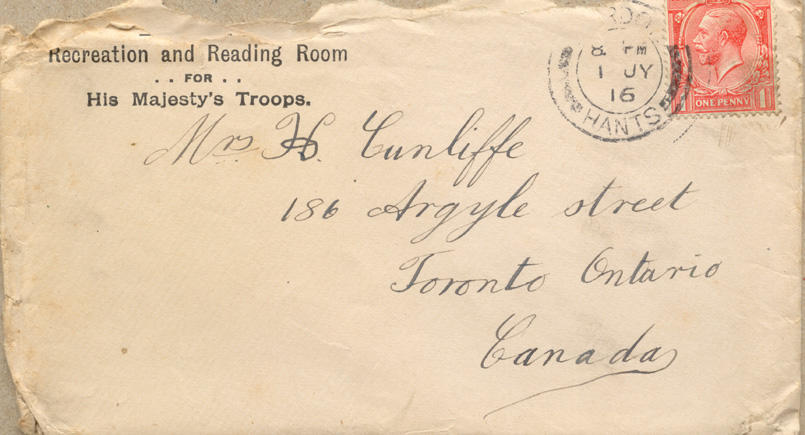 Recreation and Reading Room
. . FOR . .
His Majesty's Troops.
8 PM
1 JY
16
HANTS
ONE PENNY
1
Mrs H. Cunliffe
186 Argyle street
Toronto Ontario
Canada